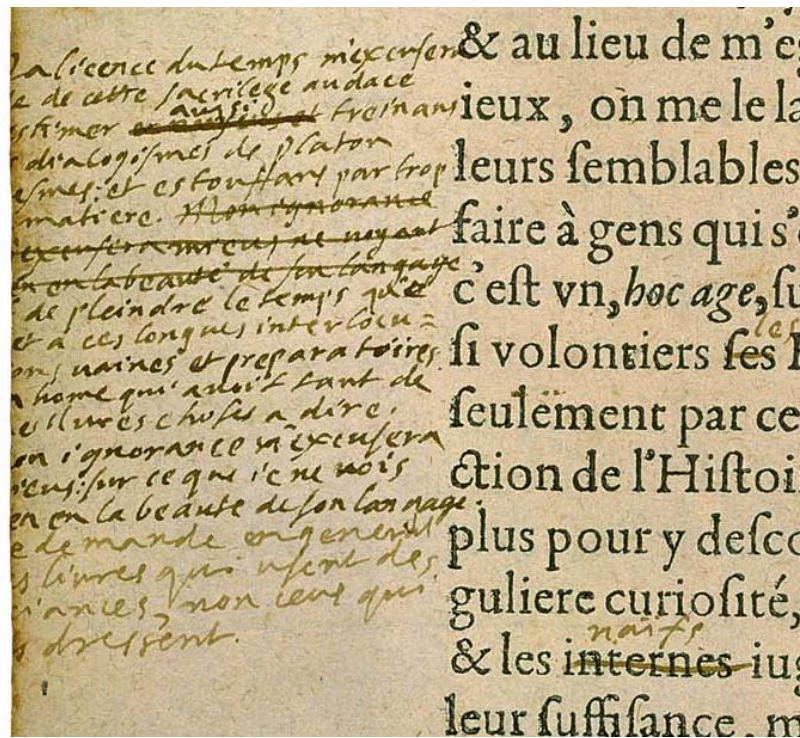 La licence du temps m'excusera
de cette sacrilege audace
aussi
estimer et treinans
dialogismes de platon
esmes: et estouffans par trop
matiere. Mon ignorance
excusera mieus ne voyant
en en la beauté de son langage
de pleindre le temps que
et a ces longues interlocu=
ons vaines et preparatoires
home qui avoit tant de
eillures choses a dire.
on ignorance m'excusera
ieus: sur ce que ie ne vois
en en la beaute de son langage.
e demande en general
s livres qui usent des
iances, non ceus qui
s dressent.
& au lieu de m'eg
ieux, on me le la
leurs ſemblables
faire à gens qui s'
c'eſt vn, hoc age, ſu
les
ſi volontiers ſes
ſeulement par ce
ction de l'Hiſtoi
plus pour y deſco
guliere curioſité,
naifs
& les internes iug
leur ſuffiſance, m